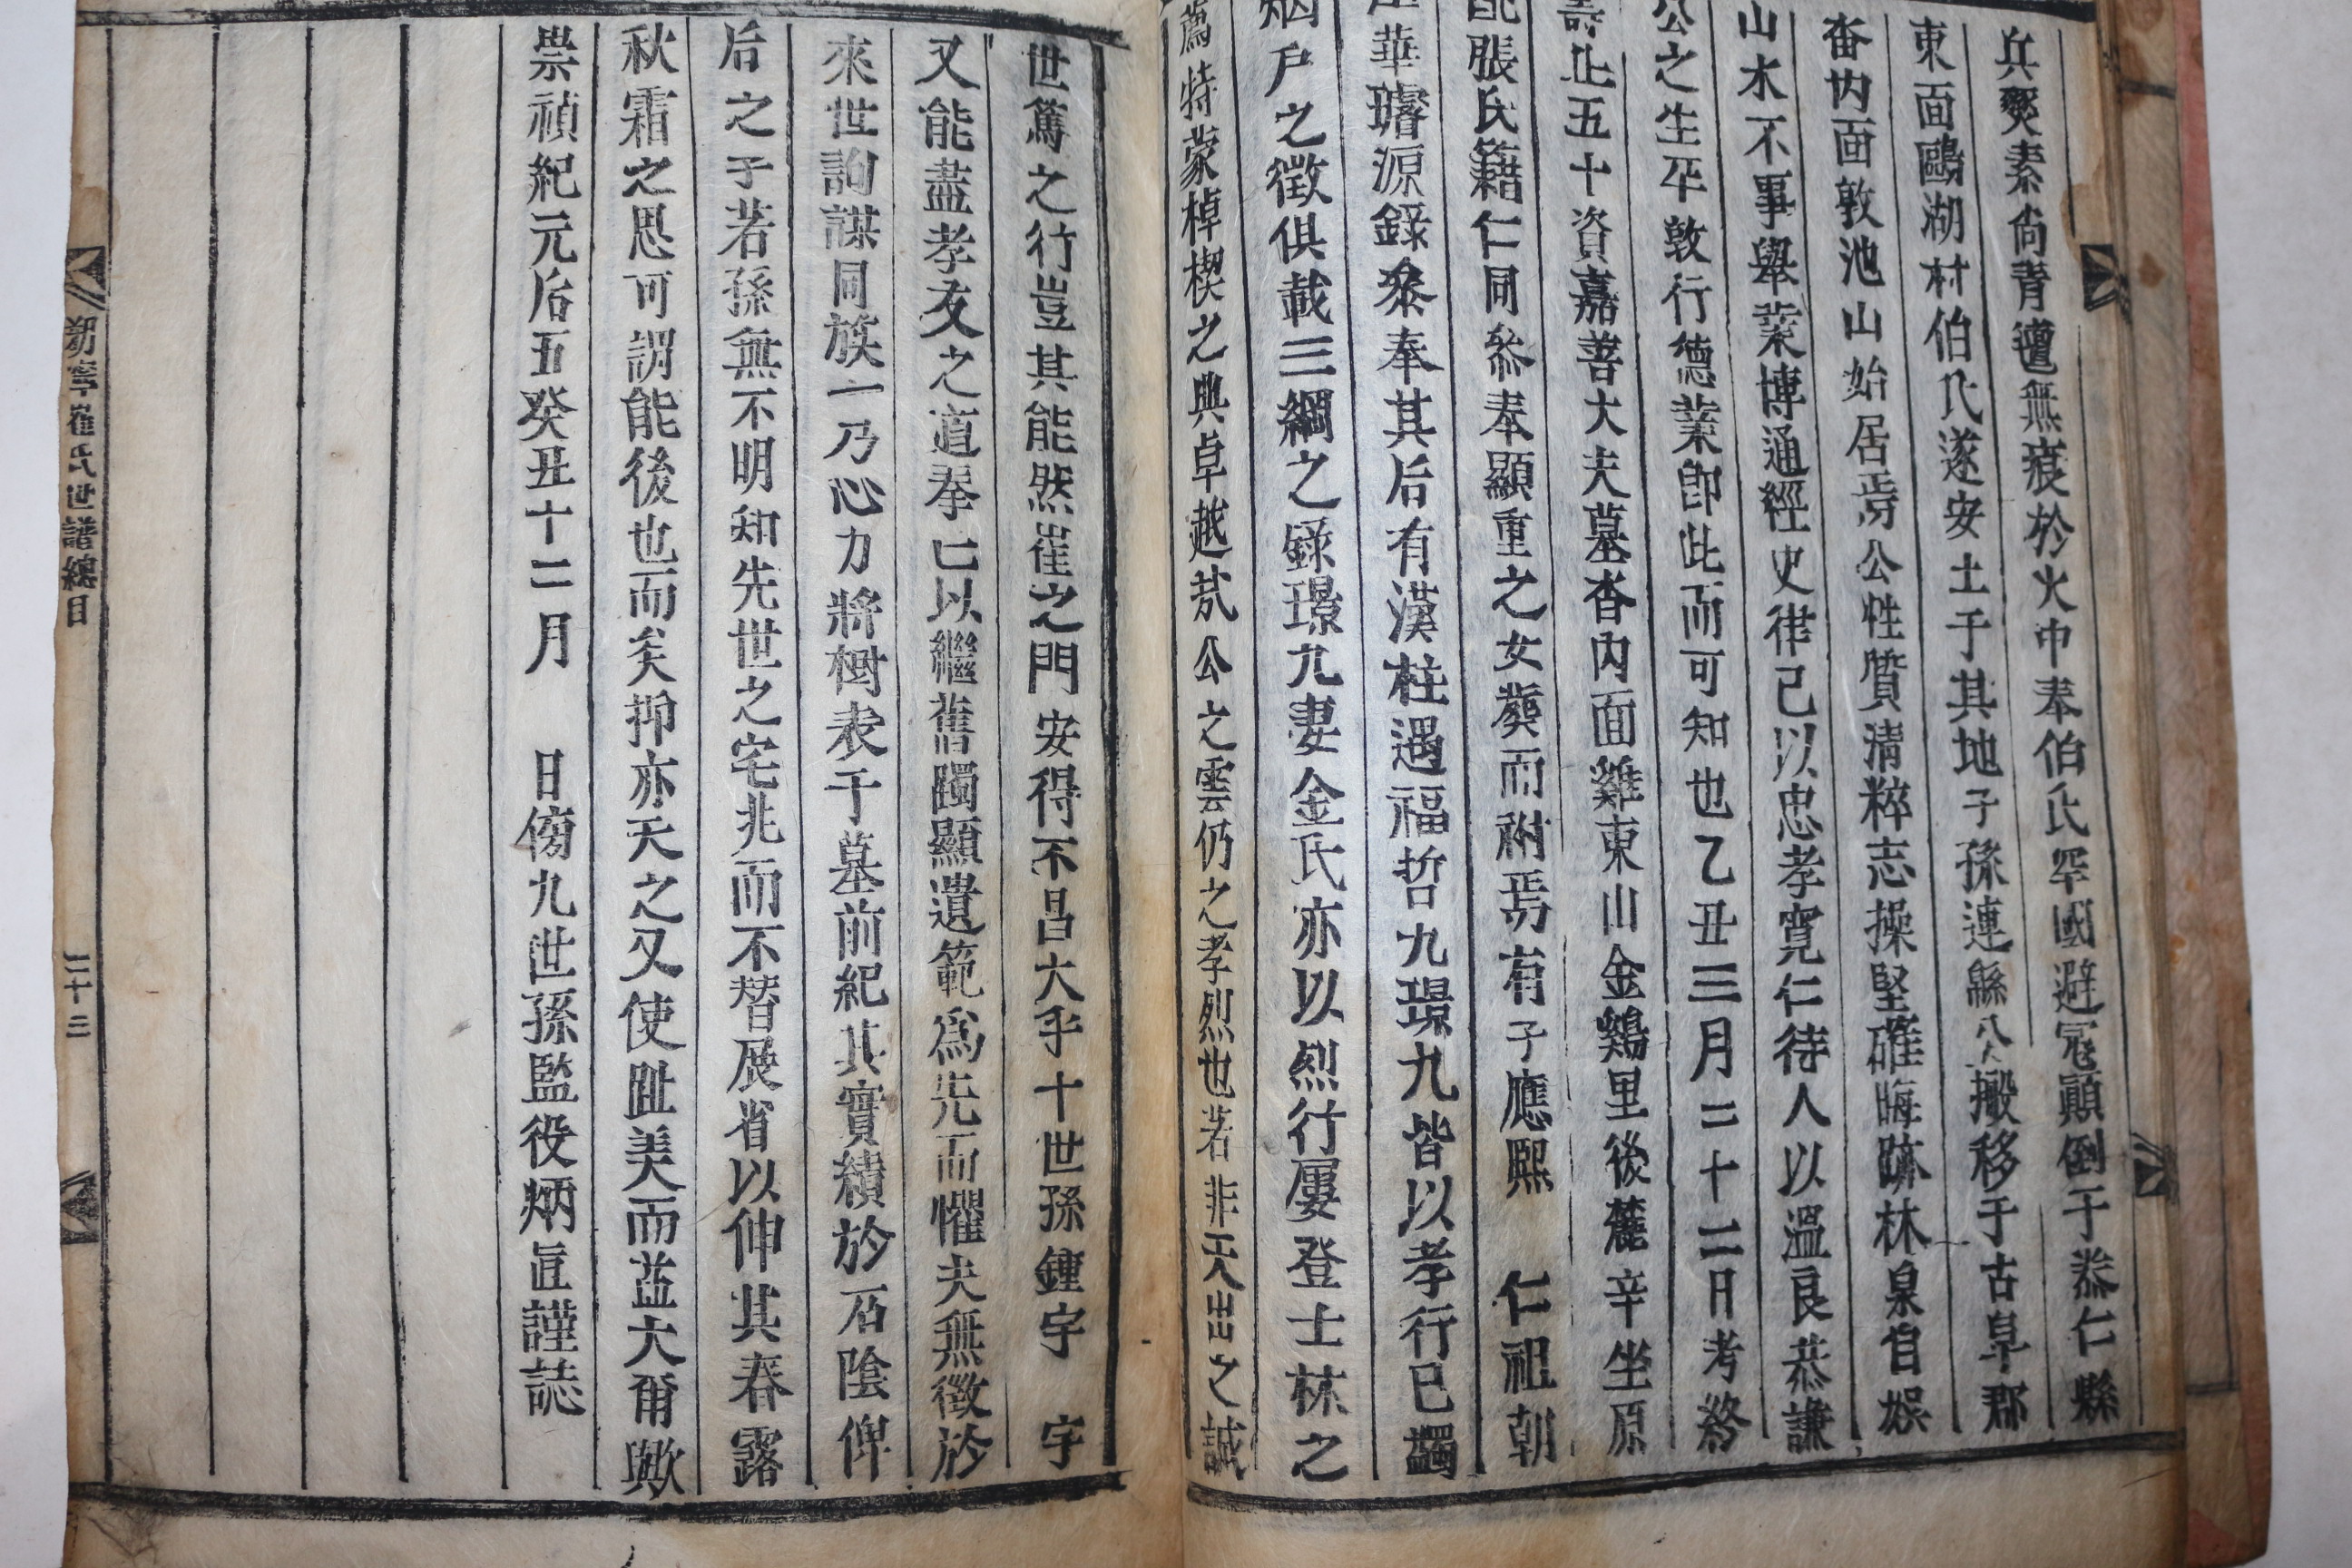 兵燹素尙青氊無痕於火中奉伯氏罕國避寇顚倒于泰仁縣
東面鷗湖村伯氏遂安土于其地子孫連緜公搬移于古阜郡
畓內面敦池山始居焉公性質淸粹志操堅確晦跡林泉自娛
山水不事擧業博通經史律己以忠孝寬仁待人以溫良恭謙
公之生平敦行德業卽此而可知也乙丑三月二十二日考終
壽止五十資嘉善大夫墓畓內面雞東山金鷄里後麓辛坐原
配張氏籍仁同叅奉顯重之女葬而祔焉有子應熙 仁祖朝
華璿源錄叅奉其后有漢柱遇福哲九璟九皆以孝行已蠲
烟戶之徵俱載三綱之錄璟九妻金氏亦以烈行屢登士林之
薦特蒙棹楔之典卓越哉公之雲仍之孝烈也若非天出之誠
世篤之行豈其能然崔之門安得不昌大乎十世孫鍾宇 宇
又能盡孝友之道奉已以繼舊躅顯遺範爲先而懼夫無徵於
來世詢謀同族一乃心力將樹表于墓前紀其實績於石陰俾
后之子若孫無不明知先世之宅兆而不替展省以伸其春露
秋霜之思可謂能後也而矣抑亦天之又使趾美而益大爾歟
崇禎紀元后五癸丑十二月 日傍九世孫監役炳眞謹誌
朔寧崔氏世譜總目 二十三